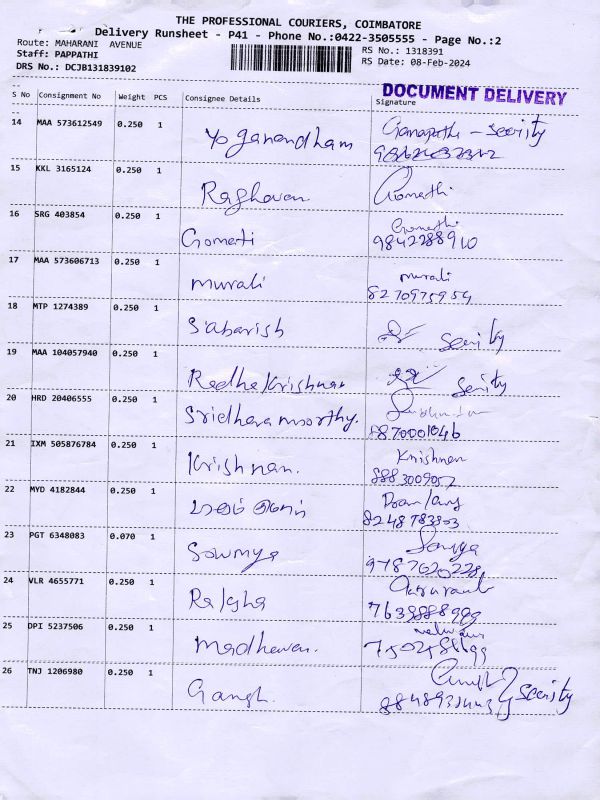 THE PROFESSIONAL COURIERS, COIMBATORE
Delivery Runsheet - P41 - Phone No.:0422-3505555 - Page No.:2
Route: MAHARANI AVENUE
Staff: PAPPATHI
DRS No.: DCJB131839102
RS No.: 1318391
RS Date: 08-Feb-2024
DOCUMENT DELIVERY
S No Consignment No Weight PCS Consignee Details Signature
14 MAA 573612549 0.250 1 Yoganandham Ganapathi - Secrity
15 KKL 3165124 0.250 1 Raghavan Gomathi
16 SRG 403854 0.250 1 Gomati Gomathi
9842288910
17 MAA 573606713 0.250 1 murali murali
8270975954
18 MTP 1274389 0.250 1 Sabarish Secrity
19 MAA 104057940 0.250 1 Radhakrishnan Secrity
20 HRD 20406555 0.250 1 Sridharamoorthy.
8870001046
21 IXM 505876784 0.250 1 Krishnan. Krishnan
8883009052
22 MYD 4182844 0.250 1
8248783303
23 PGT 6348083 0.070 1 Sowmya Sowmya
9787620228
24 VLR 4655771 0.250 1
7639888999
25 DPI 5237506 0.250 1 Madhavan.
26 TNJ 1206980 0.250 1 Secrity